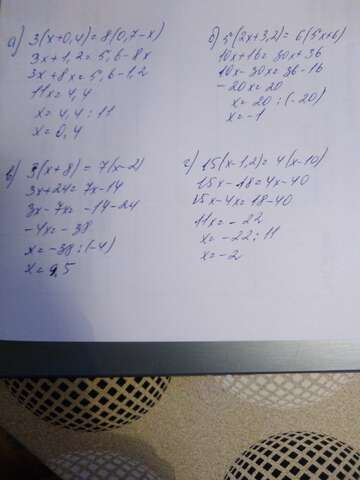 а) 3(x+0,4)=8(0,7-x)
3x+1,2=5,6-8x
3x+8x=5,6-1,2
11x=4,4
x=4,4:11
x=0,4
б) 5(2x+3,2)=6(5x+6)
10x+16=30x+36
10x-30x=36-16
-20x=20
x=20:(-20)
x=-1
в) 3(x+8)=7(x-2)
3x+24=7x-14
3x-7x=-14-24
-4x=-38
x=-38:(-4)
x=9,5
г) 15(x-1,2)=4(x-10)
15x-18=4x-40
15x-4x=18-40
11x=-22
x=-22:11
x=-2